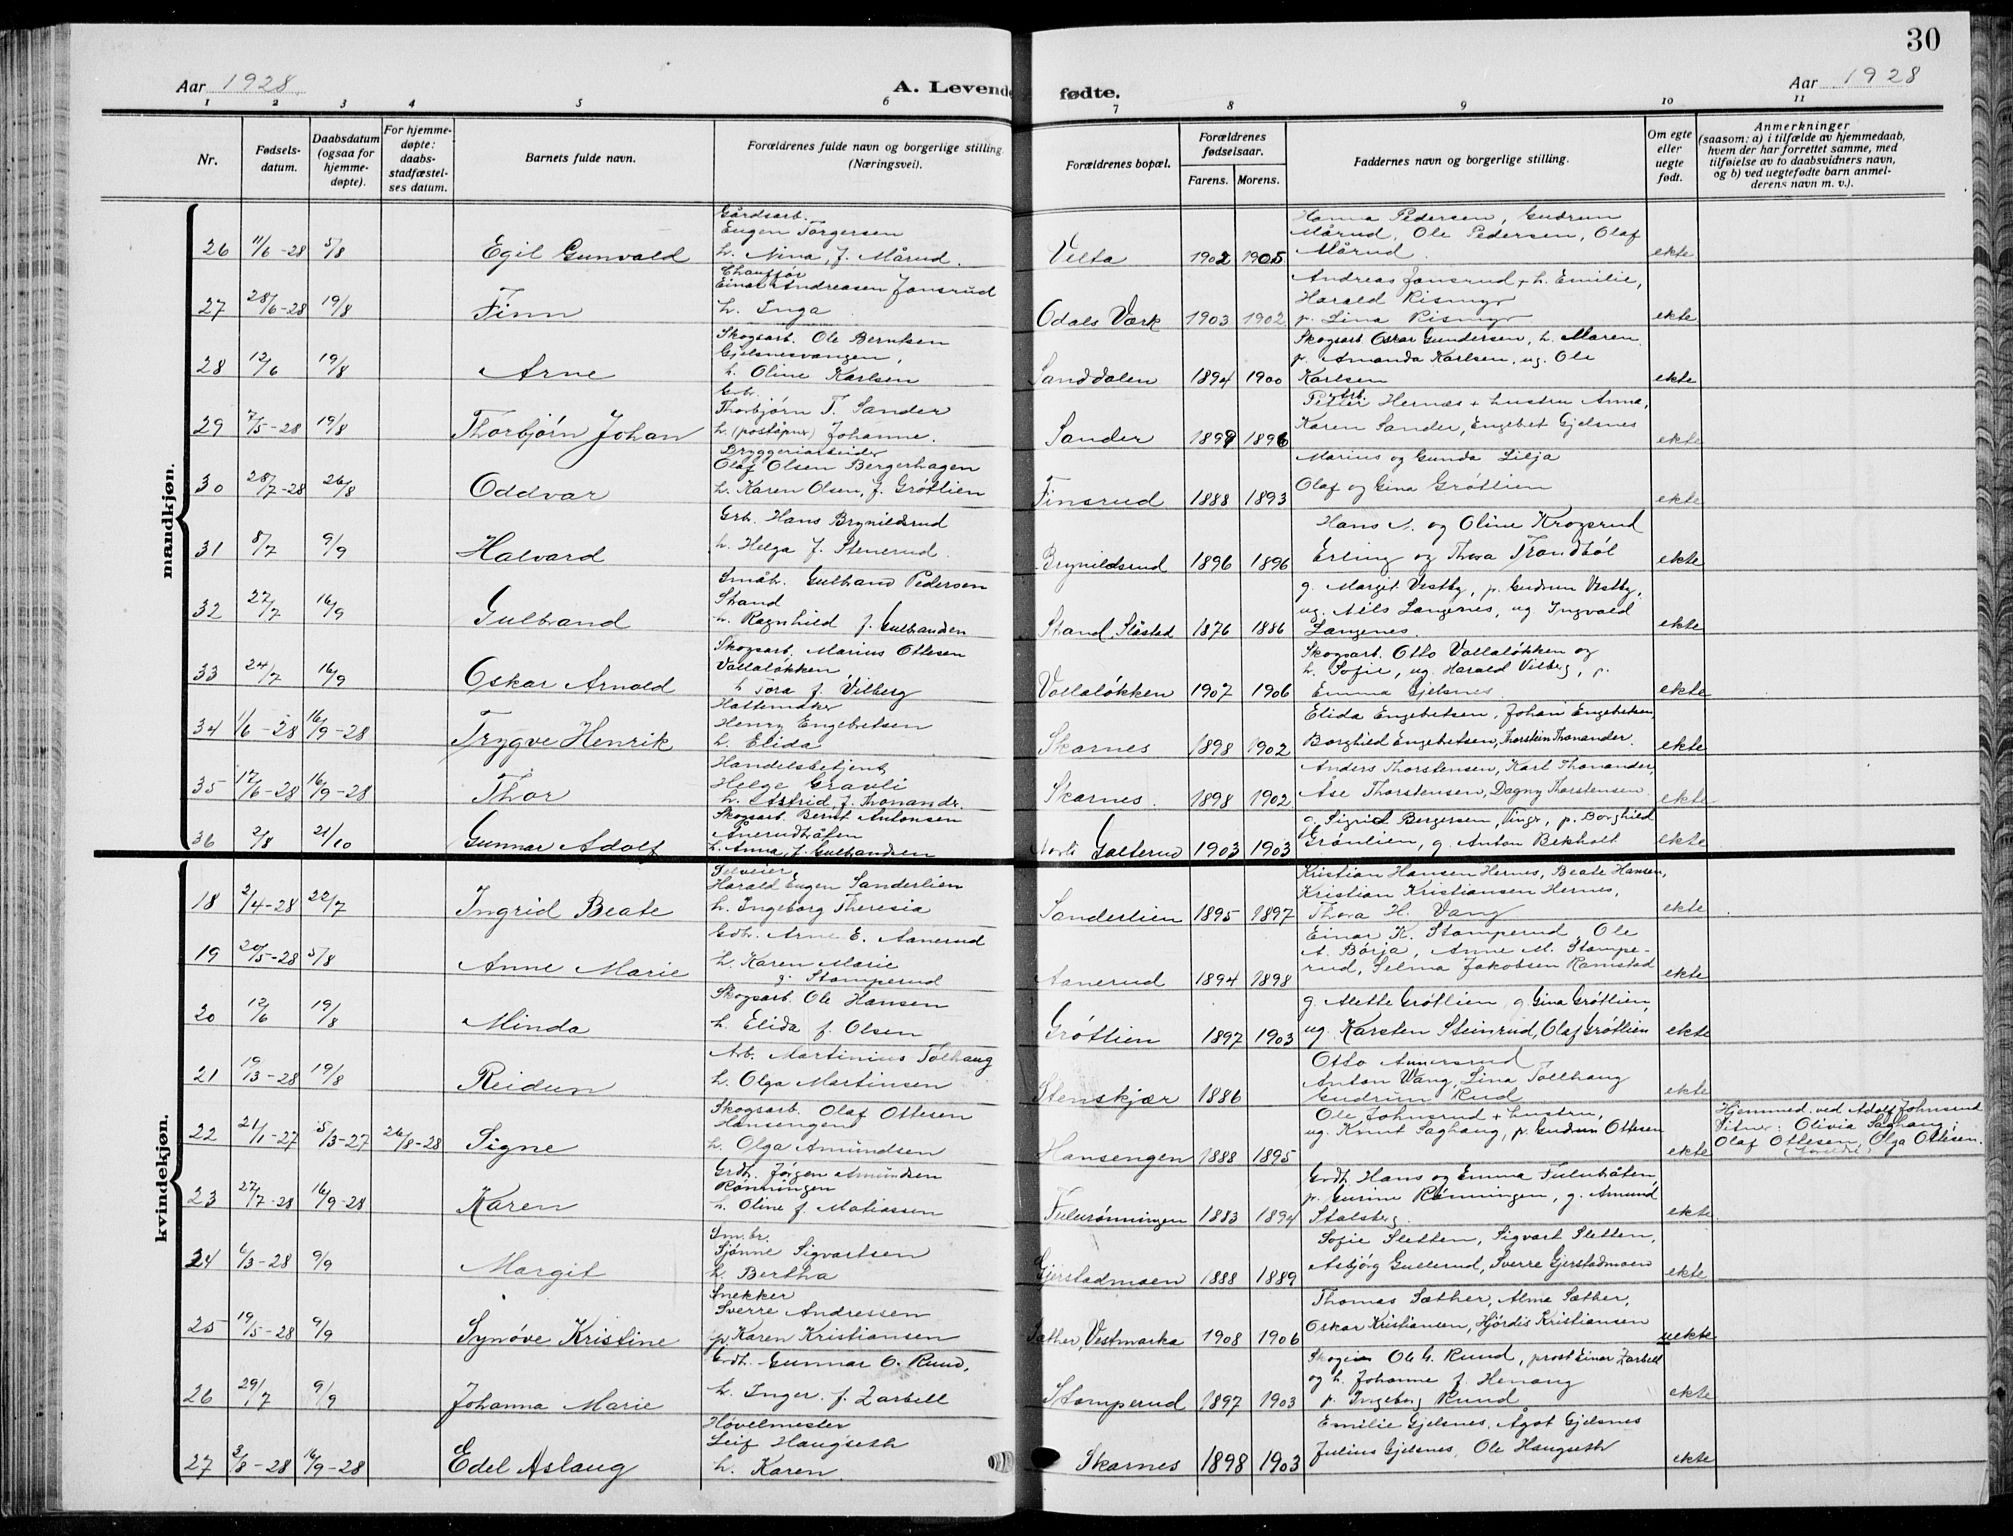 30
Aar 1928
A. Levende fødte.
Aar 1928
1 2 3 4 5 6 7 8 9 10 11
Nr.
Fødsels-
datum.
Daabsdatum
(ogsaa for
hjemme-
døpte).
For hjemme-
døpte:
daabs-
stadfæstel-
ses datum.
Barnets fulde navn.
Forældrenes fulde navn og borgerlige stilling.
(Næringsvei).
Forældrenes bopæl.
Forældrenes
fødselsaar.
Farens. Morens.
Faddernes navn og borgerlige stilling.
Om egte
eller
uegte
født.
Anmerkninger
(saasom: a) i tilfælde av hjemmedaab,
hvem der har forrettet samme, med
tilføielse av to daabsvidners navn,
og b) ved uegtefødte barn anmel-
derens navn m. v.).
mandkjøn.
26 11/6-28 5/8 Egil Gunvald
Gårdsarb.
Eugen Torgersen
h. Nina, f. Mårud.
Vilta 1902 1905
Hanna Pedersen, Gudrun
Mårud, Ole Pedersen, Olaf
Mårud.
ekte
27 28/6-28 19/8 Finn
Chauffør
Einar Andreasen Jonsrud
h. Inga
Odals Værk 1903 1902
Andreas Jonsrud + h. Emilie,
Harald Rismyr
p. Lina Rismyr
ekte
28 12/6 19/8 Arne
Skogsarb. Ole Berntsen
Gjelsnesvangen,
h. Oline Karlsen
Sanddalen 1894 1900
Skogsarb Oskar Gundersen, h. Maren
p. Amanda Karlsen, ug. Ole
Karlsen
ekte
29 7/5-28 19/8 Thorbjørn Johan
Gbr.
Thorbjørn T. Sander
h. (poståpnr) Johanne.
Sander 1898 1896
Arb.
Petter Hernæs + hustru Anna,
Karen Sander, Engebet Gjelsnes
ekte
30 28/7-28 26/8 Oddvar
Bryggeriarbeider
Olaf Olsen Bergerhagen
h. Karen Olsen, f. Grøtlien
Finsrud 1888 1893
Marius og Gunda Lilja
Olaf og Gina Grøtlien
ekte
31 8/7 9/9 Halvard
Grb. Hans Brynildsrud
h. Helga f. Stenerud.
Brynildsrud 1896 1896
Hans N. og Oline Krogsrud
Erling og Thora Trandbøl
ekte
32 27/7 16/9 Gulbrand
Småb. Gulbrand Pedersen
Strand
h. Ragnhild f. Gulbrandsen
Strand, Slåstad 1876 1886
g. Margit Vestby, p. Gudrun Vestby,
ug. Nils Langenes, ug Ingvald
Langenes.
ekte
33 24/7 16/9 Oskar Arnold
Skogsarb. Marius Ottesen
Vallaløkken,
h Tora f. Vilberg
Vallaløkken 1907 1906
Skogsarb. Otto Vallaløkken og
h. Sofie, ug. Harald Vilberg, p.
Emma Gjelsnes.
ekte
34 1/6-28 16/9-28 Trygve Henrik
Hattemaker
Henry Engebretsen
h. Elida
Skarnes 1898 1902
Elida Engebetsen, Johan Engebetsen,
Borghild Engebetsen, Thorstein Thonander.
ekte
35 17/6-28 16/9-28 Thor
Handelsbetjent
Helge Gravli
h. Astrid, f. Thonandr.
Skarnes. 1898 1902
Anders Thorstensen, Karl Thonander,
Åse Thorstensen, Dagny Thorstensen
ekte
36 2/8 21/10 Gunnar Adolf
Skogsarb Bernt Antonsen
Anerudhåten
h. Anna, f. Gulbrandsen
Galterud 1903 1903
g. Sigrid Bergersen, Vinger, p. Borghild
Grønlien, g. Anton Bekholt
ekte
kvindekjøn.
18 2/4-28 22/7 Ingrid Beate
Selveier
Harald Eugen Sanderlien
h. Ingeborg Theresia
Sanderlien 1895 1897
Kristian Hansen Hernes, Beate Hansen,
Kristian Kristiansen Hernes,
Thora H. Vang
ekte
19 20/5-28 5/8 Anne Marie
Gdb. Arne E. Aanerud
h. Karen Marie
f. Stomperud
Aanerud 1894 1898
Einar K. Stomperud, Ole
A. Børja, Anne M. Stompe-
rud, Selma Jakobsen Ramstad
ekte
20 12/6 19/8 Minda
Skogsarb. Ole Hansen
h. Elida f. Olsen
Grøtlien 1897 1903
g. Alette Grøtlien, g. Gina Grøtlien,
ug. Karsten Steinrud, Olaf Grøtlien
ekte
21 19/3-28 19/8 Reidun
Arb. Martinius Tolhaug
h. Olga Martinsen
Stenskjær 1886
Otto Annersrud
Anton Vang, Lina Tollhaug
Gudrun Rud
ekte
22 21/1-27 5/3-27 26/8-28 Signe
Skogsarb. Olaf Ottesen
Hansengen
h. Olga Amundsen
Hansengen 1888 1895
Ole Johnsrud + hustru,
ug. Knut Saghaug, p. Gudrun Ottesen
ekte
Hjemmed. ved Adolf Johnsrud
Vitner: Olivia Saghaug,
Olaf Ottesen, Olga Ottesen.
23 27/7-28 16/9-28 Karen
Grdb. Jørgen Amundsen
Rønningen
h. Oline f. Matiassen
Fulurønningen 1883 1894
Grdb Hans og Emma Fuluhåten,
p. Gurine Rønningen, g. Amund
Stalsberg.
ekte
24 6/3-28 9/9 Margit
Sm.br.
Sjønne Sigvartsen
h. Bertha
Gjerstadmoen 1888 1889
Sofie Sletten, Sigvart Sletten,
Asbjørg Gullerud, Sverre Gjerstadmoen
ekte
25 19/5-28 9/9 Synøve Kristine
Snekker
Sverre Andressen
p Karen Kristiansen
Sæther, Vestmarka 1908 1906
Thomas Sæther, Alma Sæther,
Oskar Kristiansen, Hjørdis Kristiansen
uekte
26 29/7 9/9 Johanna Marie
Grdb. Gunnar O. Ruud,
h. Inger f. Zarbell
Stomperud 1897 1903
Skogeier Ole G. Ruud, prost Einar Zarbell
og h. Johanne f Henang
p. Ingeborg Ruud
ekte
27 3/8-28 16/9-28 Edel Aslaug
Høvelmester
Leif Haugseth
h. Karen.
Skarnes 1898 1903
Emilie Gjelsnes, Ågot Gjelsnes
Julius Gjelsnes, Ole Haugseth
ekte